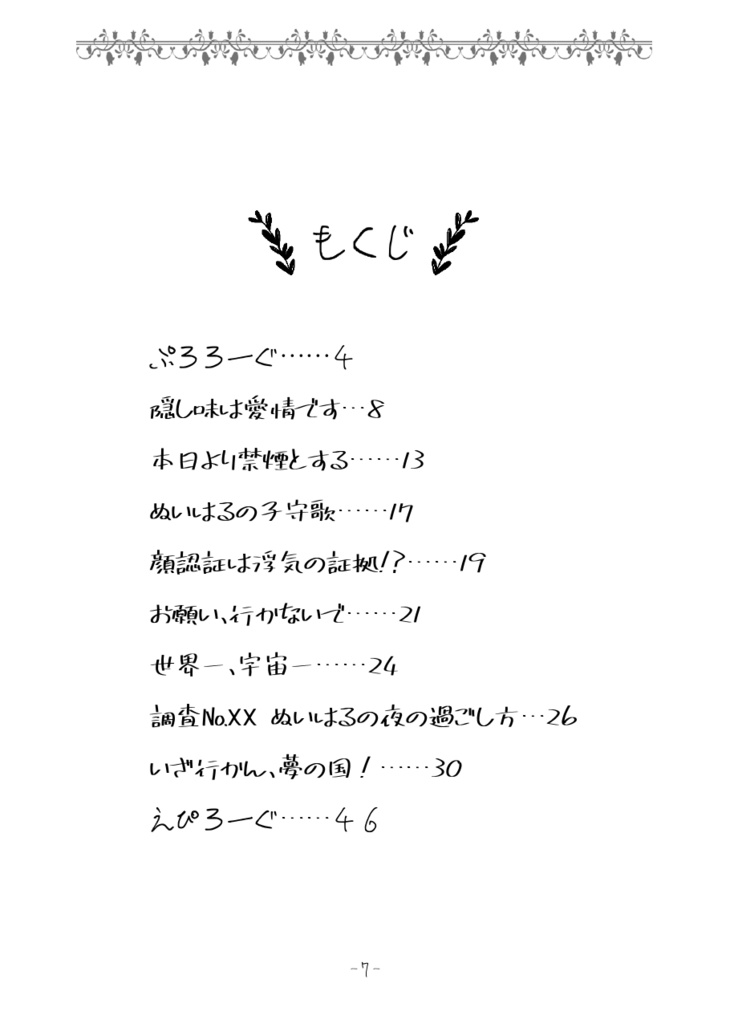 もくじ
ぷろろーぐ……4
隠し味は愛情です…8
本日より禁煙とする……13
ぬいはるの子守歌……17
顔認証は浮気の証拠!?……19
お願い、行かないで……21
世界一、宇宙一……24
調査No.XX ぬいはるの夜の過ごし方…26
いざ行かん、夢の国！……30
えぴろーぐ……46
-7-